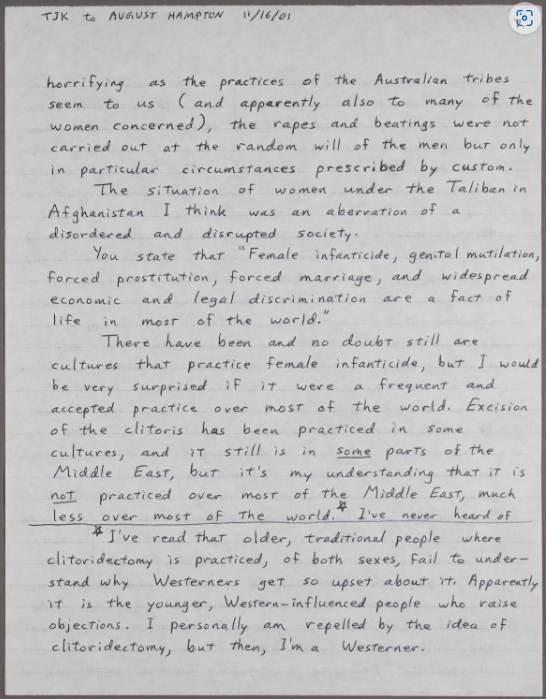 TJK to AUGUST HAMPTON 11/16/01
horrifying as the practices of the Australian tribes
seem to us (and apparently also to many of the
women concerned), the rapes and beatings were not
carried out at the random will of the men but only
in particular circumstances prescribed by custom.
The situation of women under the Taliban in
Afghanistan I think was an aberration of a
disordered and disrupted society.
You state that "Female infanticide, genital mutilation,
forced prostitution, forced marriage, and widespread
economic and legal discrimination are a fact of
life in most of the world."
There have been and no doubt still are
cultures that practice female infanticide, but I would
be very surprised if it were a frequent and
accepted practice over most of the world. Excision
of the clitoris has been practiced in some
cultures, and it still is in some parts of the
Middle East, but it's my understanding that it is
not practiced over most of the Middle East, much
less over most of the world.* I've never heard of
*I've read that older, traditional people where
clitoridectomy is practiced, of both sexes, fail to under-
stand why Westerners get so upset about it. Apparently
it is the younger, Western-influenced people who raise
objections. I personally am repelled by the idea of
clitoridectomy, but then, I'm a Westerner.